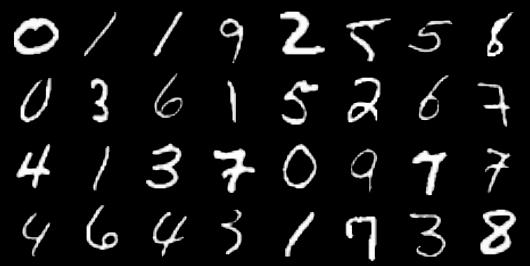 0 1 1 9 2 5 5 8
0 3 6 1 5 2 6 7
4 1 3 7 0 9 7 7
4 6 4 3 1 7 3 8